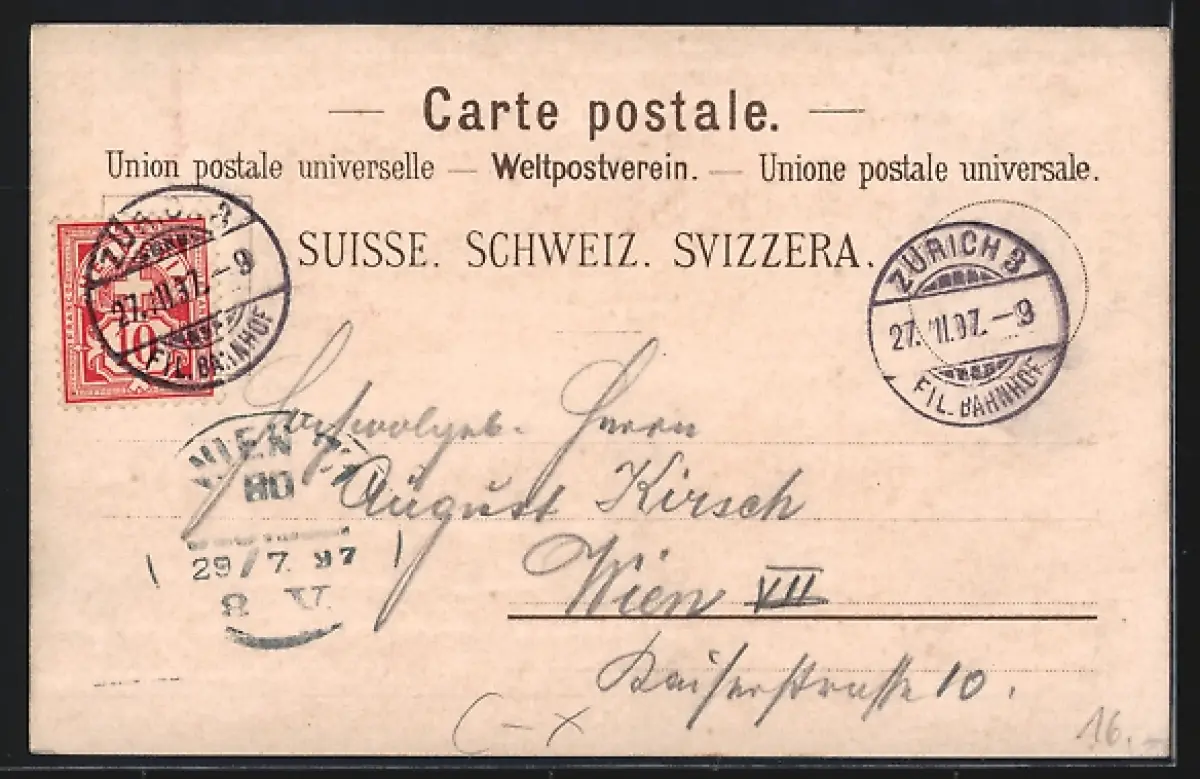 — Carte postale. —
Union postale universelle — Weltpostverein. — Unione postale universale.
SUISSE. SCHWEIZ. SVIZZERA.
ZÜRICH 3
27. VII. 97. – 9
FIL. BAHNHOF
10
ZÜRICH 3
27. VII. 97. – 9
FIL. BAHNHOF
Hochwolgeb. Herrn
August Kirsch
Wien VII
Kaiserstrasse 10.
WIEN
29/7. 97
8. V.
16.